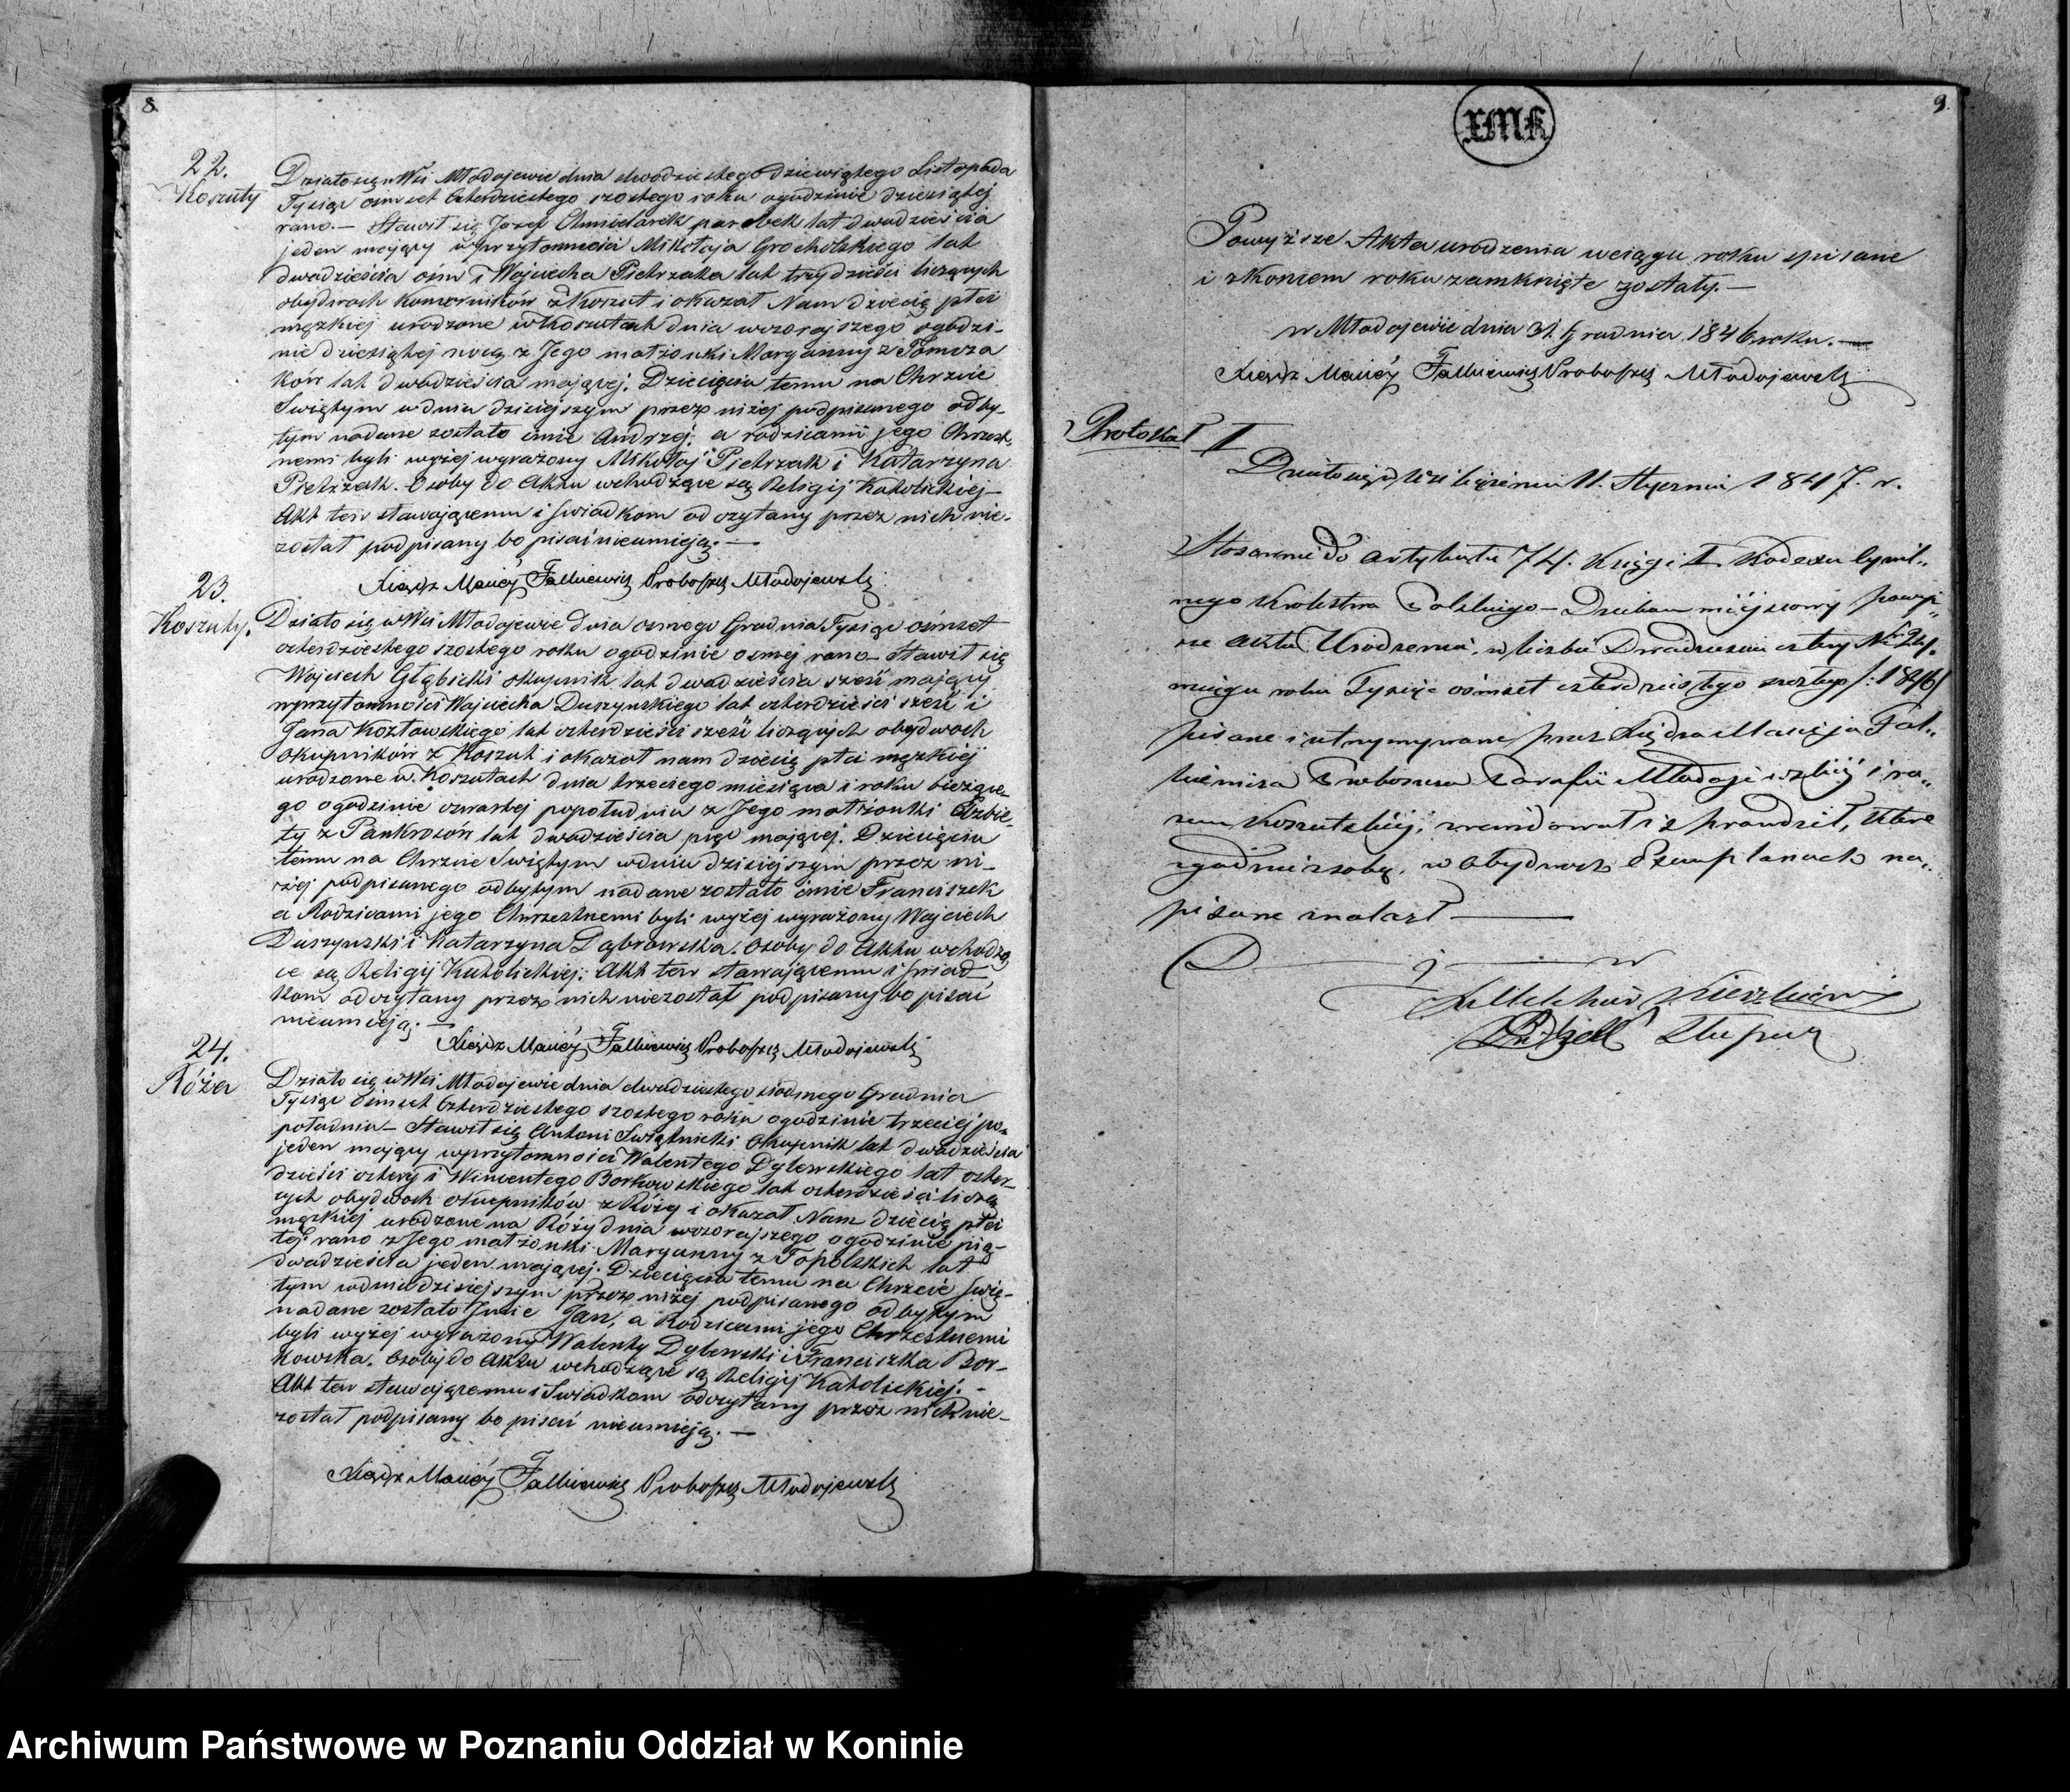 8.
22.
Koszuty
Działo się w Wsi Młodojewie dnia dwódziestego dziewiątego Listopada
Tysiąc ośmset Czterdziestego szóstego roku o godzinie dziesiątej
rano. — Stawił się Jozef Chmielarek parobek lat dwadzieścia
jeden mający w przytomności Mikołaja Grocholskiego lat
dwadzieścia ośm i Wojciecha Pietrzaka lat trzydzieści liczących
obydwóch komorników z Koszut i okazał Nam dziecię płci
męzkiej urodzone w Koszutach dnia wczorajszego o godzi-
nie dziesiątej w nocy z Jego małżonki Maryanny z Tomcza
ków lat dwadzieścia mającej. Dziecięciu temu na Chrzcie
Świętym w dniu dzisiejszym przez niżej podpisanego odby-
tym nadane zostało imie Andrzej, a rodzicami jego Chrzest-
nemi byli wyżej wyrażony Mikołaj Pietrzak i Katarzyna
Pietrzak. Osoby do Aktu wchodzące są Religij Katolickiej
Akt ten stawającemu i świadkom odczytany przez nich nie-
został podpisany bo pisać nieumieją. —
Xiądz Maciej Falkiewicz Proboszcz Młodojewski
23.
Koszuty.
Działo się w Wsi Młodojewie Dnia osmego Grudnia Tysiąc ośmset
czterdziestego szostego roku o godzinie osmej rano — Stawił się
Wojciech Głąbicki okupnik lat dwadzieścia sześć mający
w przytomności Wojciecha Duszynskiego lat czterdzieści sześć i
Jana Kozłowskiego lat czterdzieści sześć liczących obydwoch
okupników z Koszut i okazał nam dziecię płci męzkiej
urodzone w Koszutach dnia trzeciego miesiąca i roku bieżące-
go o godzinie czwartej popołudniu z Jego małżonki Elżbie-
ty z Pankrosów lat dwadzieścia pięć mającej. Dziecięciu
temu na Chrzcie Świętym w dniu dzisiejszym przez ni-
żej podpisanego odbytym nadane zostało imie Franciszek
a Rodzicami jego Chrzestnemi byli wyżej wyrażony Wojciech
Duszynski i Katarzyna Dąbrowska. Osoby do Aktu wchodzą
ce są Religij Katolickiej. Akt ten stawającemu i świad-
kom odczytany przez nich niezostał podpisany bo pisać
nieumieją. —
Xiądz Maciej Falkiewicz Proboszcz Młodojewski
24.
Róża
Działo się w Wsi Młodojewie dnia dwudziestego siódmego Grudnia
Tysiąc Ośmset Czterdziestego szostego roku o godzinie trzeciej po-
południu — Stawił się Antoni Swiątnicki Okupnik lat dwadzieścia
jeden mający w przytomności Walentego Dylewskiego lat czter-
dzieści cztery i Wincentego Borkowskiego lat czterdzieści liczą
cych obydwoch okupników z Róży i okazał Nam dziecię płci
męzkiej urodzone na Róży dnia wczorajszego o godzinie pią-
tej rano z Jego małżonki Maryanny z Topolskich lat
dwadzieścia jeden mającej. Dziecięciu temu na Chrzcie Świę-
tym w dniu dzisiejszym przez niżej podpisanego odbytym
nadane zostało Imie Jan, a Rodzicami jego Chrzestnemi
byli wyżej wyrażony Walenty Dylewski i Franciszka Bor-
kowska. Osoby do Aktu wchodzące są Religij Katolickiej. -
Akt ten stawającemu i Świadkom odczytany przez nich nie-
został podpisany bo pisać nieumieją. —
Xiądz Maciej Falkiewicz Proboszcz Młodojewski
9.
XMK
Powyższe Akta urodzenia w ciągu roku spisane
i z Końcem roku zamknięte zostały. —
w Młodojewie dnia 31. Grudnia 1846 roku. —
Xiądz Maciej Falkiewicz Proboszcz Młodojewski
Protokół I
Działo się w Wsi 11. Stycznia 1847. r.
Stosownie do artykułu 74. Księgi I Kodexu Cywil-
nego Królestwa Polskiego — Dziekan miejscowy powyż-
sze akta Urodzenia, w liczbie Dwadzieścia cztery No 24.
w ciągu roku Tysiąc ośmset czterdziestego szostego /:1846/
pisane i utrzymywane przez Księdza Macieja Fal-
kiewicza Proboszcza Parafii Młodojewskiej i ra-
zem Koszutskiej, zrewidował i sprawdził, które
zgodnie z sobą, w obydwoch Exemplarzach na-
pisane znalazł —
D j w